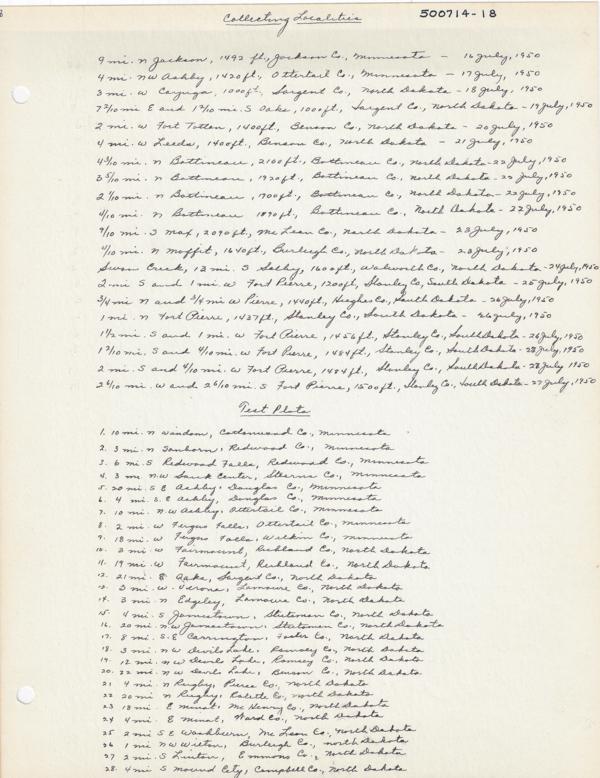 Collecting Localities
500714-18
9 mi. N Jackson, 1492 ft., Jackson Co., Minnesota - 16 July, 1950
4 mi. NW Ashby, 1420 ft., Ottertail Co., Minnesota - 17 July, 1950
3 mi. W Cayuga, 1000 ft., Sargent Co., North Dakota - 18 July, 1950
7 2/10 mi E and 1 9/10 mi. S Oaks, 1000 ft., Sargent Co., North Dakota - 19 July, 1950
2 mi. W Fort Totten, 1400 ft., Benson Co., North Dakota - 20 July, 1950
4 mi. W Leeds, 1400 ft., Benson Co., North Dakota - 21 July, 1950
4 3/10 mi. N Bottineau, 2100 ft., Bottineau Co., North Dakota - 22 July, 1950
3 5/10 mi. N Bottineau, 1920 ft., Bottineau Co., North Dakota - 22 July, 1950
2 1/10 mi. N Bottineau, 1700 ft., Bottineau Co, North Dakota - 22 July, 1950
4/10 mi. N Bottineau 1890 ft., Bottineau Co., North Dakota - 22 July, 1950
9/10 mi. S Max, 2090 ft., McLean Co., North Dakota - 23 July, 1950
4/10 mi. N Moffit, 1640 ft., Burleigh Co., North Dakota - 23 July, 1950
Swan Creek, 13 mi. S Selby, 1600 ft., Walworth Co., North Dakota - 24 July, 1950
2 mi S and 1 mi. W Fort Pierre, 1200 ft, Stanley Co, South Dakota - 25 July, 1950
3/4 mi N and 3/4 mi W Pierre, 1440 ft, Hughes Co, South Dakota - 26 July, 1950
1 mi. N Fort Pierre, 1437 ft., Stanley Co, South Dakota - 26 July, 1950
1 1/2 mi. S and 1 mi. W Fort Pierre, 1456 ft., Stanley Co, South Dakota - 26 July, 1950
1 7/10 mi. S and 4/10 mi. W Fort Pierre, 1484 ft., Stanley Co, South Dakota - 28 July, 1950
2 mi. S and 4/10 mi. W Fort Pierre, 1484 ft., Stanley Co, South Dakota - 28 July, 1950
2 6/10 mi. W and 2 6/10 mi. S Fort Pierre, 1500 ft., Stanley Co, South Dakota - 27 July, 1950
Test Plots
1. 10 mi. N Windom, Cottonwood Co., Minnesota
2. 3 mi. N Sanborn, Redwood Co., Minnesota
3. 6 mi. S Redwood Falls, Redwood Co., Minnesota
4. 3 mi. N.W Sauk Center, Stearns Co., Minnesota
5. 20 mi. S E Ashby, Douglas Co., Minnesota
6. 4 mi. S.E Ashby, Douglas Co., Minnesota
7. 10 mi. N.W Ashby, Ottertail Co., Minnesota
8. 2 mi. W Fergus Falls, Ottertail Co., Minnesota
9. 18 mi. W Fergus Falls, Wilkin Co., Minnesota
10. 3 mi. W Fairmount, Richland Co., North Dakota
11. 19 mi. W Fairmount, Richland Co., North Dakota
12. 21 mi. E Oaks, Sargent Co., North Dakota
13. 3 mi. W. Verona, Lamoure Co., North Dakota
14. 3 mi. N Edgeley, Lamoure Co., North Dakota
15. 4 mi. S Jamestown, Stutsman Co., North Dakota
16. 20 mi. N.W Jamestown, Stutsman Co., North Dakota
17. 8 mi. S.E Carrington, Foster Co., North Dakota
18. 3 mi. N.W Devils Lake, Ramsey Co., North Dakota
19. 12 mi. N.W Devils Lake, Ramsey Co., North Dakota
20. 22 mi. N.W Devils Lake, Benson Co., North Dakota
21 4 mi N Rugby, Pierce Co., North Dakota
22 20 mi N Rugby, Rolette Co., North Dakota
23 18 mi. E Minot, McHenry Co., North Dakota
24 4 mi. E Minot, Ward Co., North Dakota
25 2 mi S E Washburn, McLean Co., North Dakota
26 1 mi N W Wilton, Burleigh Co., North Dakota
27 2 mi. S Linton, Emmons Co., North Dakota
28. 4 mi S Mound City, Campbell Co., North Dakota